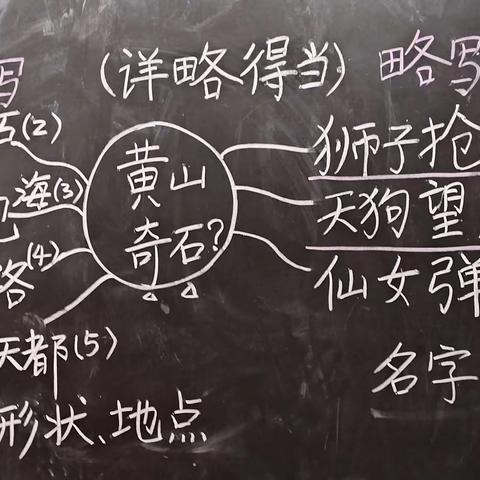 写 (详略得当) 略写
石(2)
海(3)
(4)
天都(5)
形状、地点
黄山
奇石?
狮子抢
天狗望
仙女弹
名字